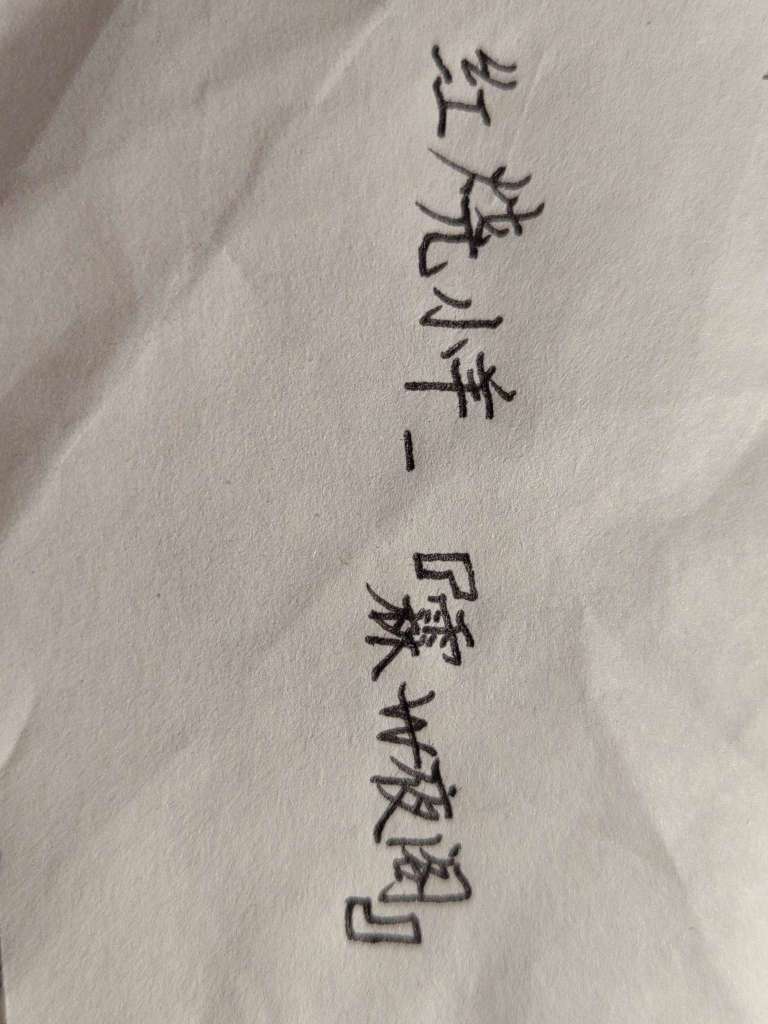 红烧小羊_『霖艹夜阁』